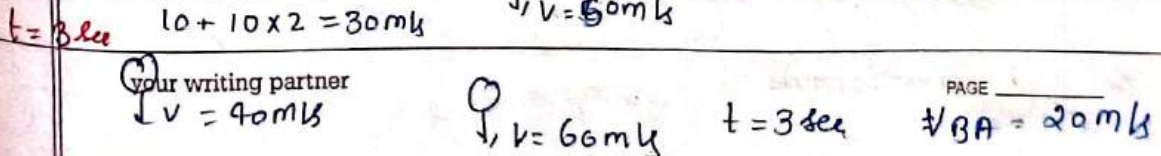 t = 3 sec 10 + 10 x 2 = 30 m/s ↓, V = 50 m/s
your writing partner
PAGE
↓ v = 40 m/s ↓, v = 60 m/s t = 3 sec VBA = 20 m/s